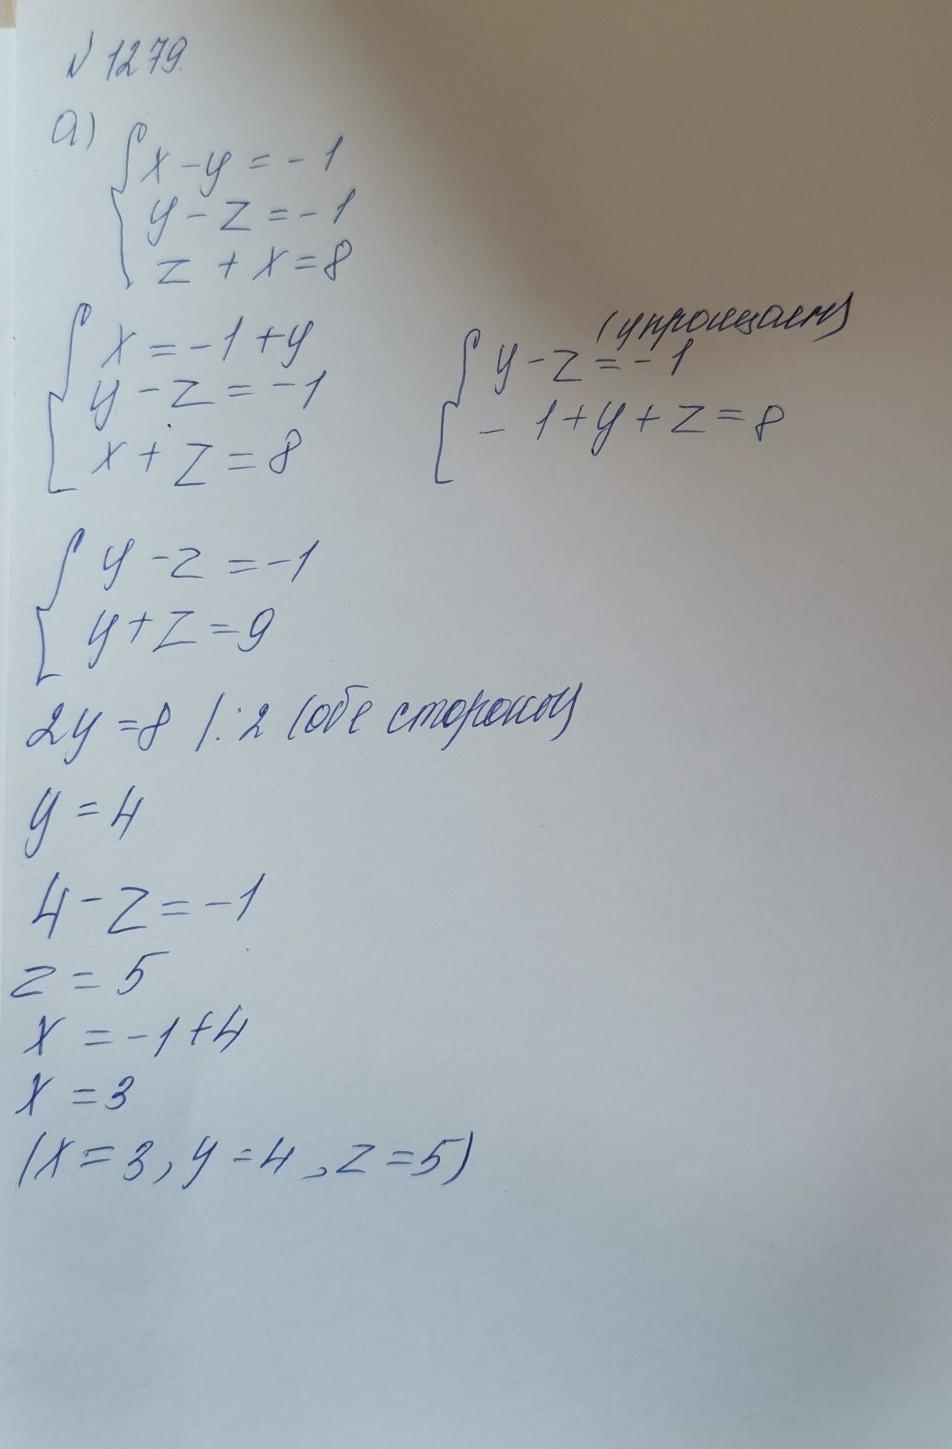 № 1279.
а)
x - y = - 1
y - z = - 1
z + x = 8
x = -1 + y
y - z = -1
x + z = 8
(упрощаем)
y - z = - 1
- 1 + y + z = 8
y - z = -1
y + z = 9
2y = 8 | : 2 (обе стороны)
y = 4
4 - z = -1
z = 5
x = -1 + 4
x = 3
(x = 3, y = 4, z = 5)